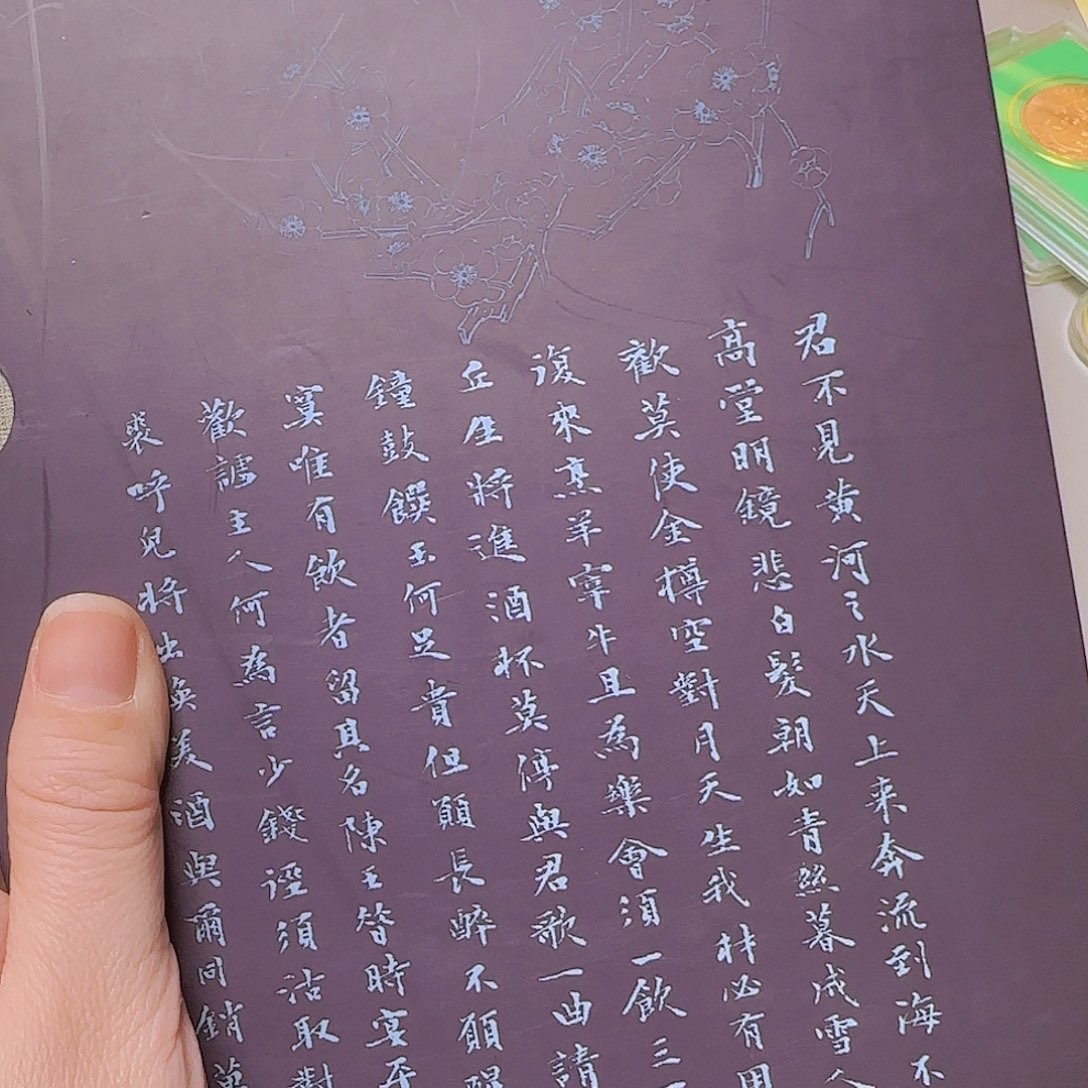 君不見黄河之水天上来奔流到海不
高堂明鏡悲白髮朝如青絲暮成雪人
歡莫使金樽空對月天生我材必有用
復來烹羊宰牛且為樂會須一飲三
丘生將進酒杯莫停與君歌一曲請
鐘鼓饌玉何足貴但願長醉不願醒
寞唯有飲者留其名陳王昔時宴平
歡謔主人何為言少錢逕須沽取對
裘呼兒將出換美酒與爾同銷萬